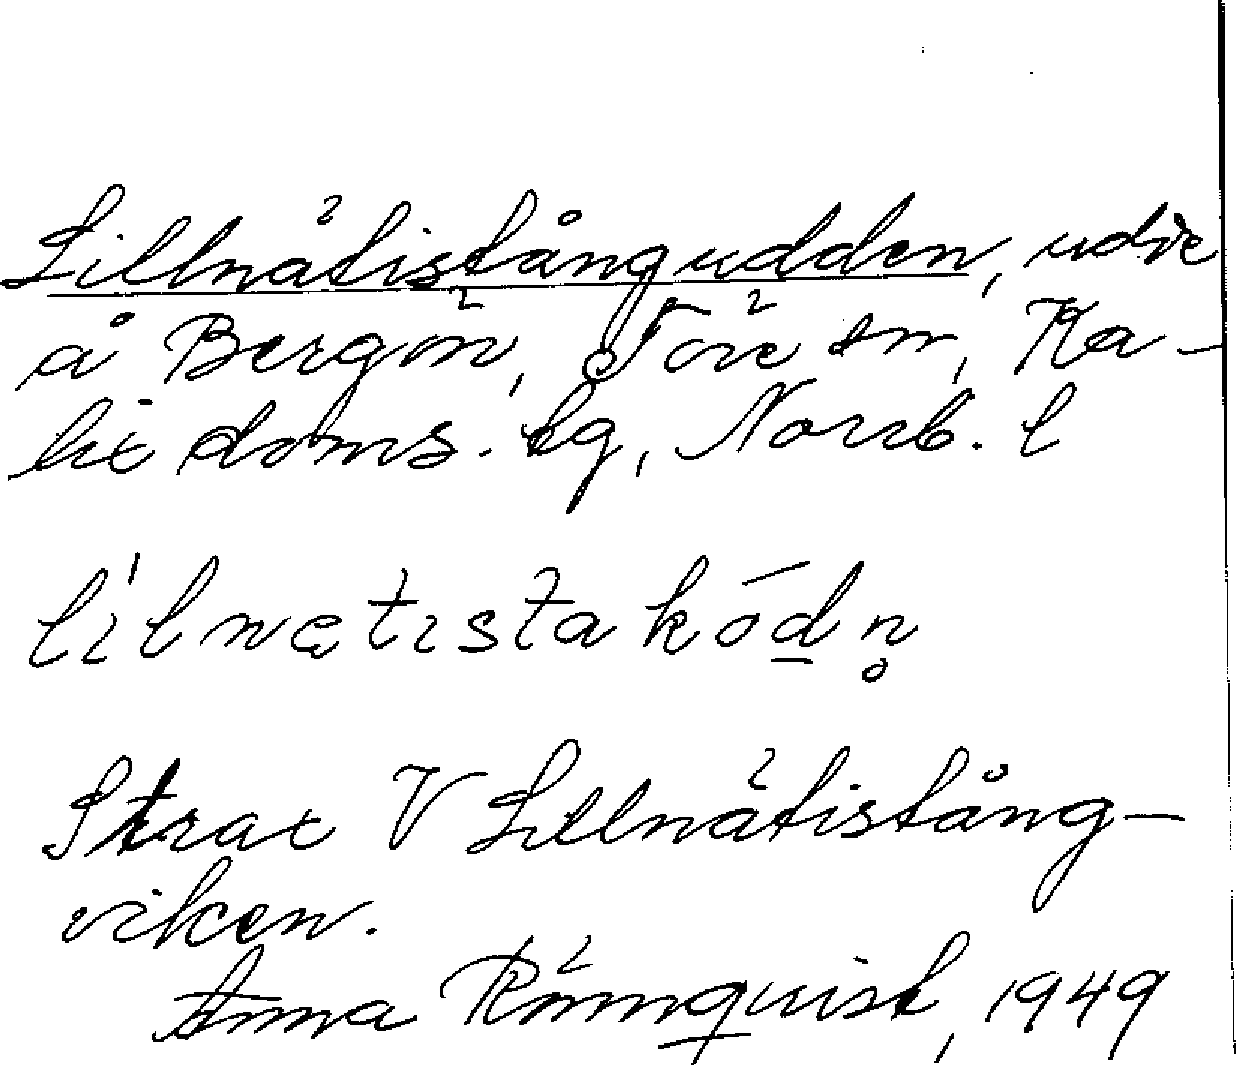 Lillnätistångudden, udde
å Bergön, Töre sn, Ka-
lix doms. lg, Norrb. l
lílnętıstakṓdn̥
Strax V Lillnätistång-
viken.
Anna Rönnquist, 1949